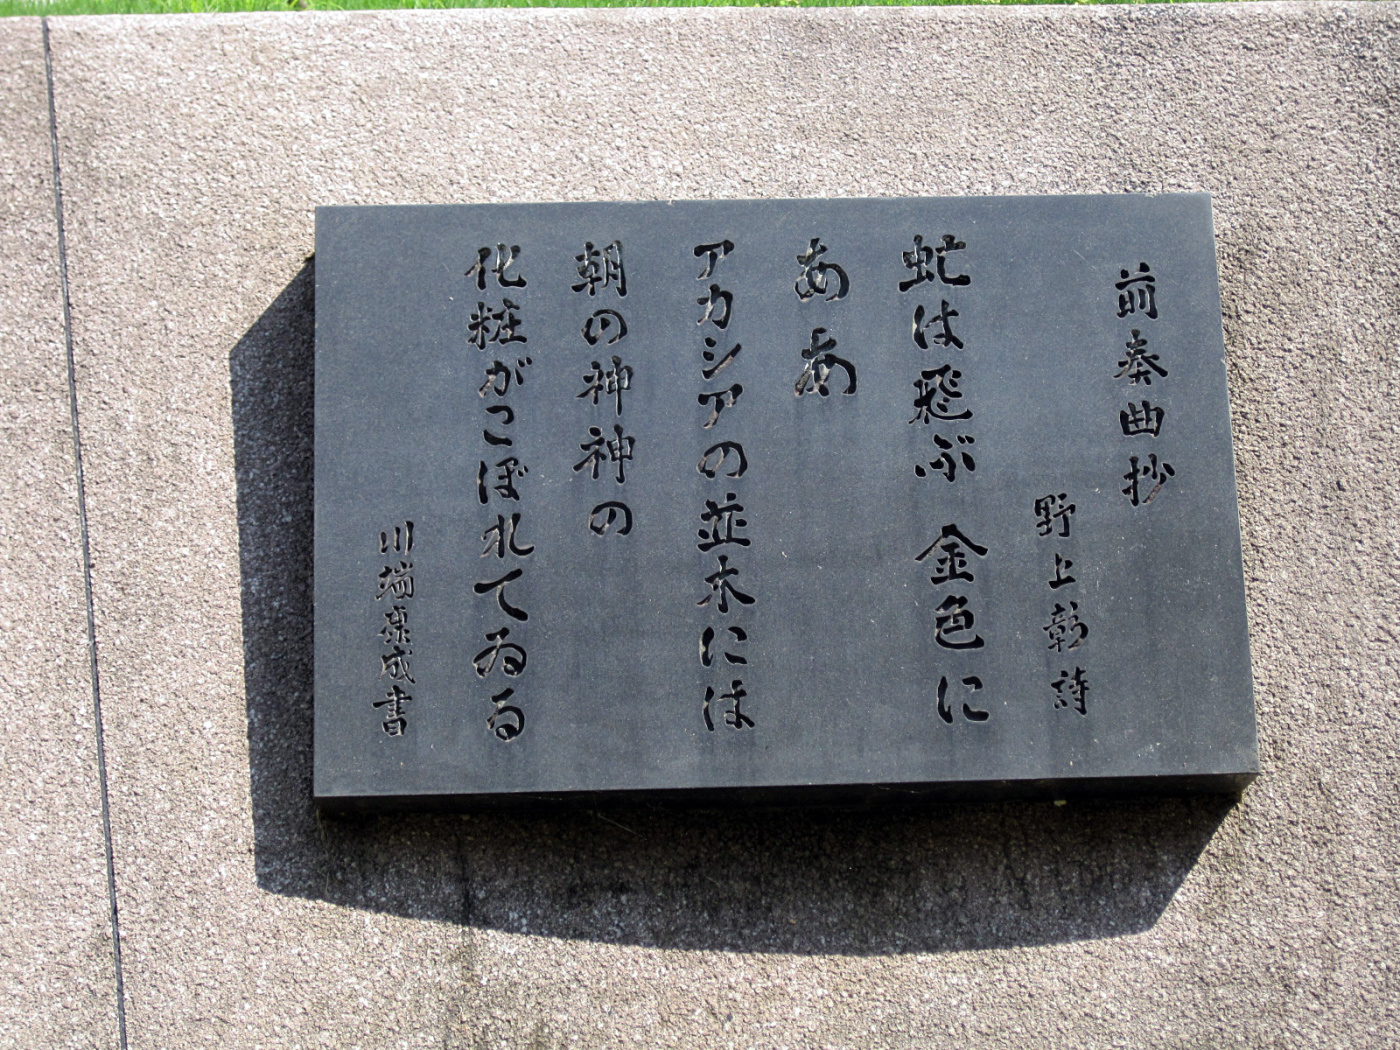 前奏曲抄
野上彰詩
虻は飛ぶ 金色に
ああ
アカシアの並木には
朝の神神の
化粧がこぼれてゐる
川端康成書